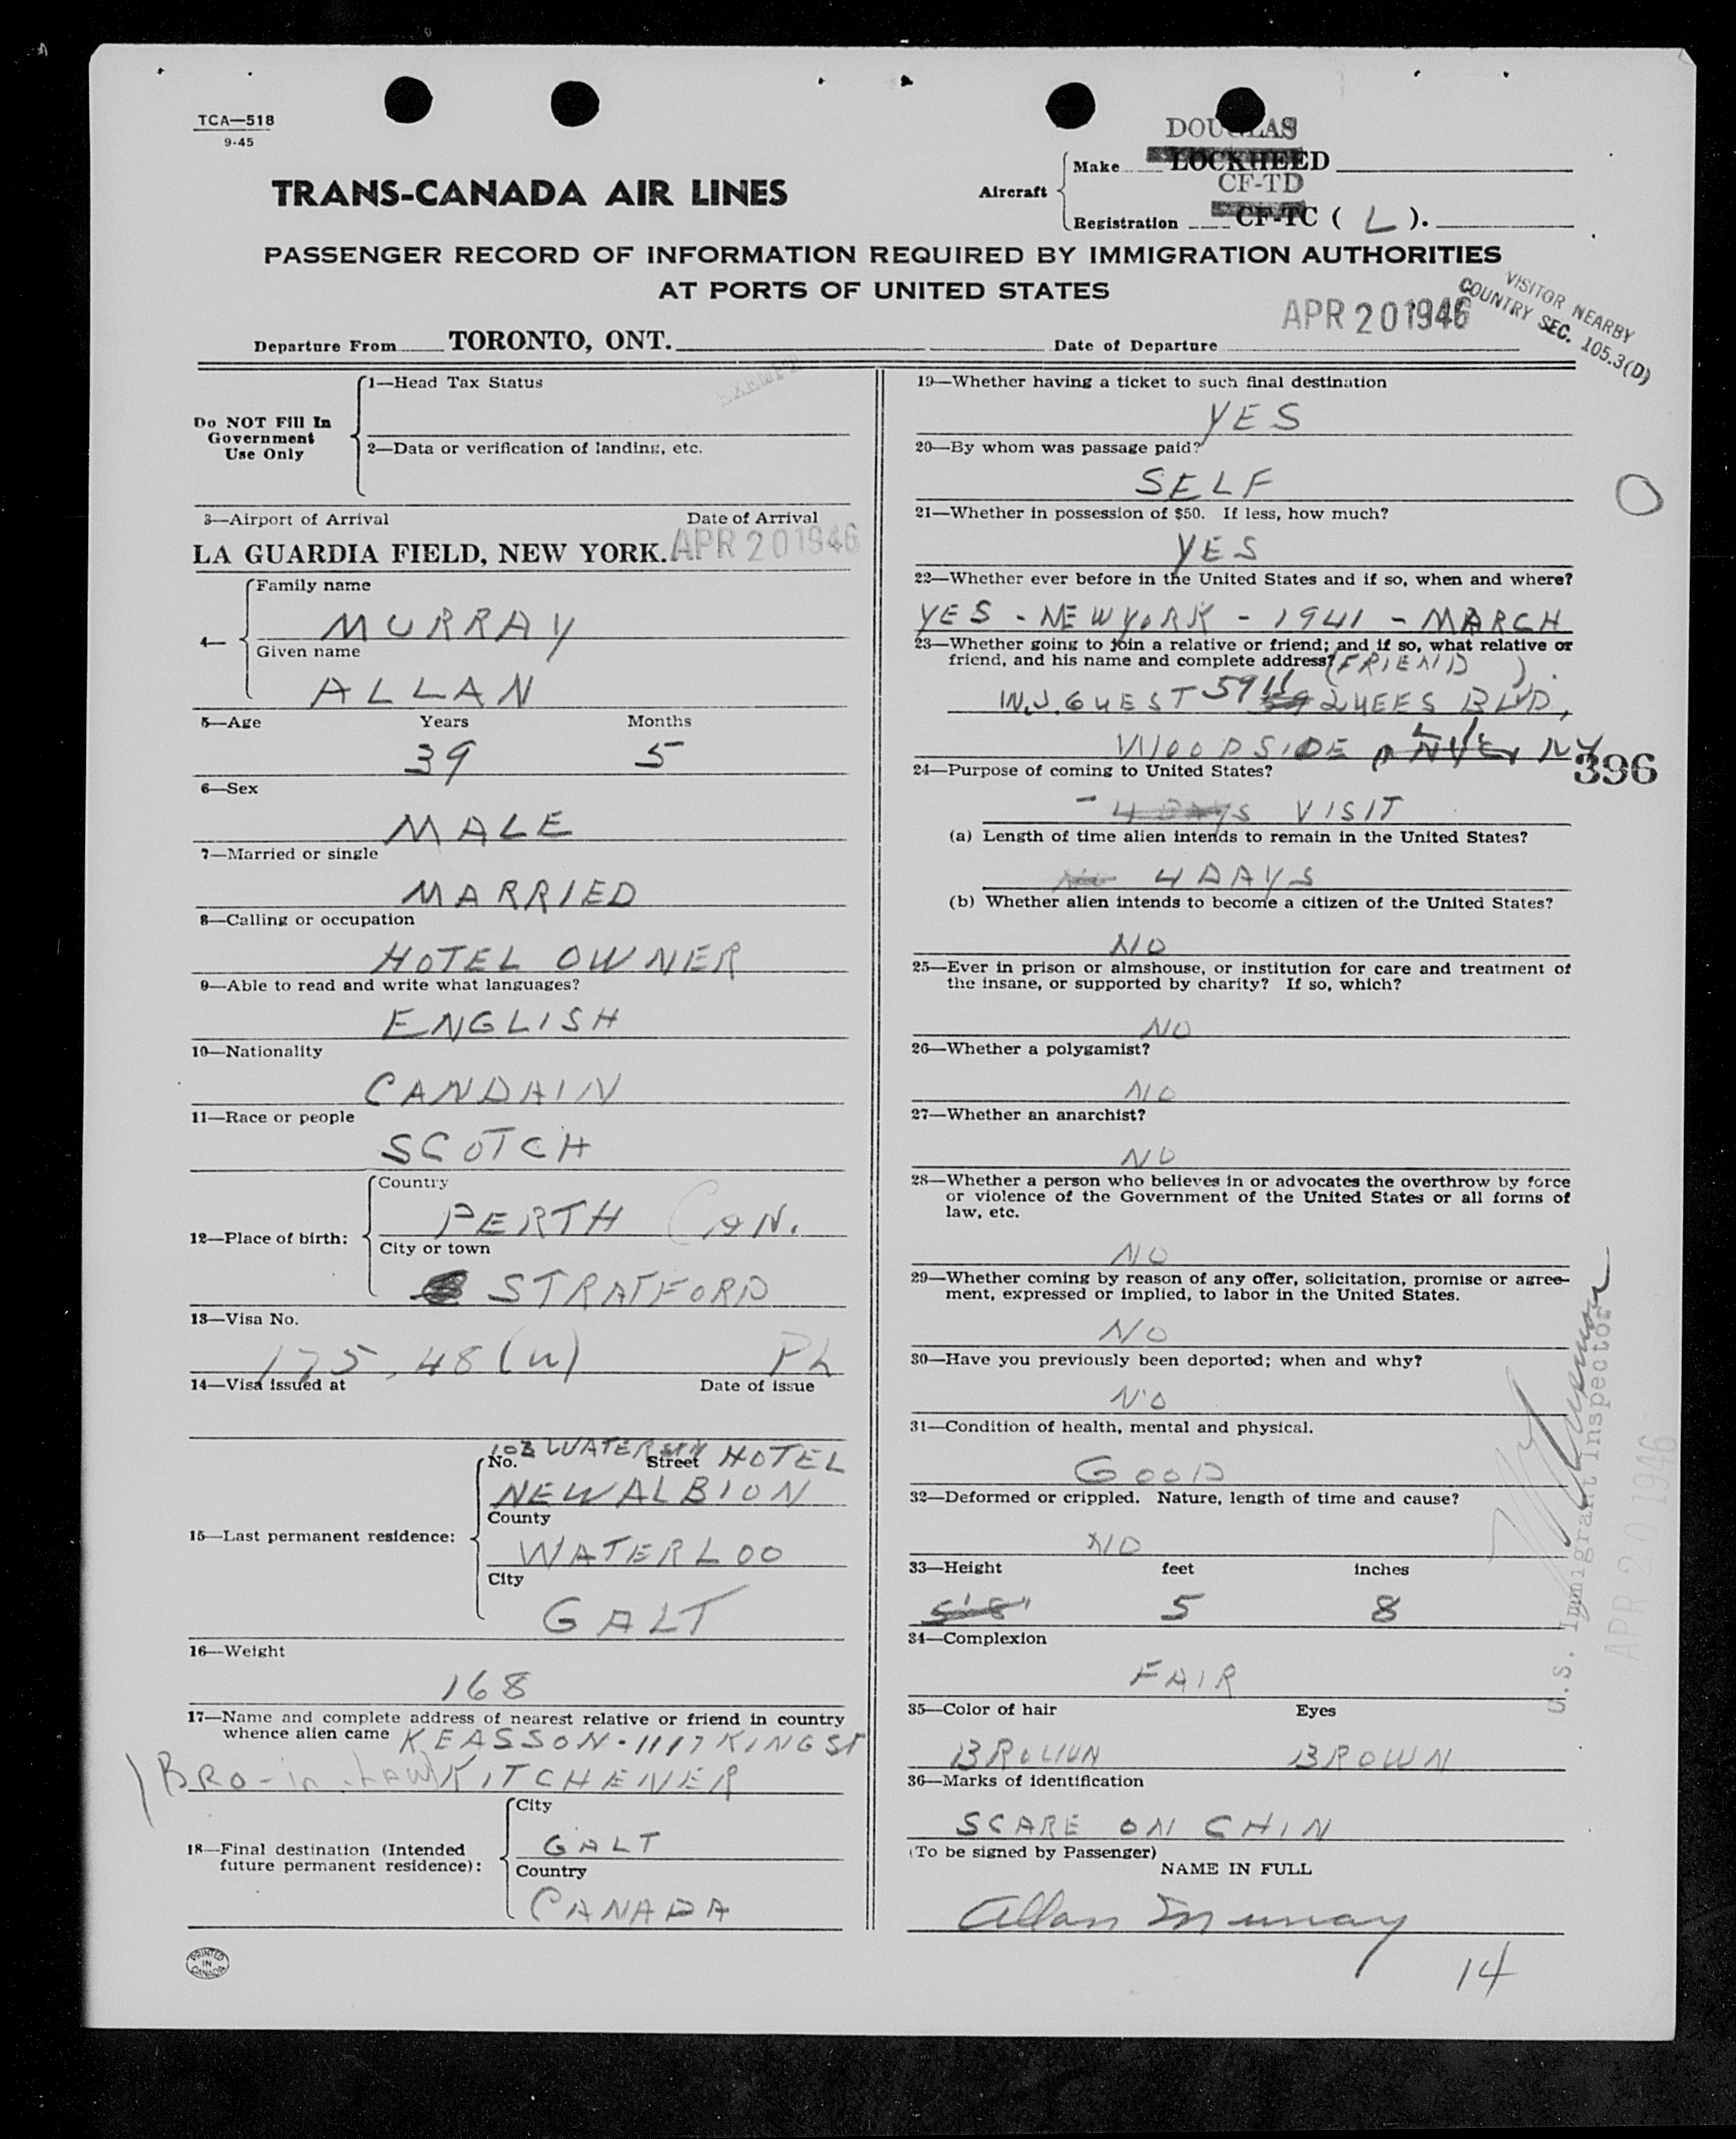 TCA—518
9-45
DOUGLAS
Make LOCKHEED
TRANS-CANADA AIR LINES
Aircraft
CF-TD
Registration CF-TC ( L ).
PASSENGER RECORD OF INFORMATION REQUIRED BY IMMIGRATION AUTHORITIES
AT PORTS OF UNITED STATES
VISITOR NEARBY
COUNTRY SEC. 105.3(D)
APR 20 1946
Departure From TORONTO, ONT. Date of Departure
Do NOT Fill In
Government
Use Only
1—Head Tax Status
EXEMPT
2—Data or verification of landing, etc.
3—Airport of Arrival Date of Arrival
LA GUARDIA FIELD, NEW YORK. APR 20 1946
4— Family name
MURRAY
Given name
ALLAN
5—Age Years Months
39 5
6—Sex
MALE
7—Married or single
MARRIED
8—Calling or occupation
HOTEL OWNER
9—Able to read and write what languages?
ENGLISH
10—Nationality
CANDAIN
11—Race or people
SCOTCH
12—Place of birth:
Country
PERTH CAN.
City or town
STRATFORD
13—Visa No.
175.48(a) Ph
14—Visa issued at Date of issue
15—Last permanent residence:
No. Street
WATER HOTEL
NEWALBION
County
WATERLOO
City
GALT
16—Weight
168
17—Name and complete address of nearest relative or friend in country
whence alien came KEASSON-1117 KING ST
BRO-in-LAW KITCHENER
18—Final destination (Intended
future permanent residence):
City
GALT
Country
CANADA
PRINTED
IN
CANADA
19—Whether having a ticket to such final destination
YES
20—By whom was passage paid?
SELF
21—Whether in possession of $50. If less, how much?
YES
22—Whether ever before in the United States and if so, when and where?
YES - NEWYORK - 1941 - MARCH
23—Whether going to join a relative or friend; and if so, what relative or
friend, and his name and complete address? (FRIEND)
W.J. GUEST 5911 QUEES BLVD,
WOODSIDE NY
396
24—Purpose of coming to United States?
- 4 DAYS VISIT
(a) Length of time alien intends to remain in the United States?
4 DAYS
(b) Whether alien intends to become a citizen of the United States?
NO
25—Ever in prison or almshouse, or institution for care and treatment of
the insane, or supported by charity? If so, which?
NO
26—Whether a polygamist?
NO
27—Whether an anarchist?
NO
28—Whether a person who believes in or advocates the overthrow by force
or violence of the Government of the United States or all forms of
law, etc.
NO
29—Whether coming by reason of any offer, solicitation, promise or agree-
ment, expressed or implied, to labor in the United States.
NO
30—Have you previously been deported; when and why?
NO
31—Condition of health, mental and physical.
GOOD
32—Deformed or crippled. Nature, length of time and cause?
NO
33—Height feet inches
5'8" 5 8
34—Complexion
FAIR
35—Color of hair Eyes
BROWN BROWN
36—Marks of identification
SCARE ON CHIN
(To be signed by Passenger)
NAME IN FULL
Allan Murray
14
U.S. Immigrant Inspector
APR 20 1946